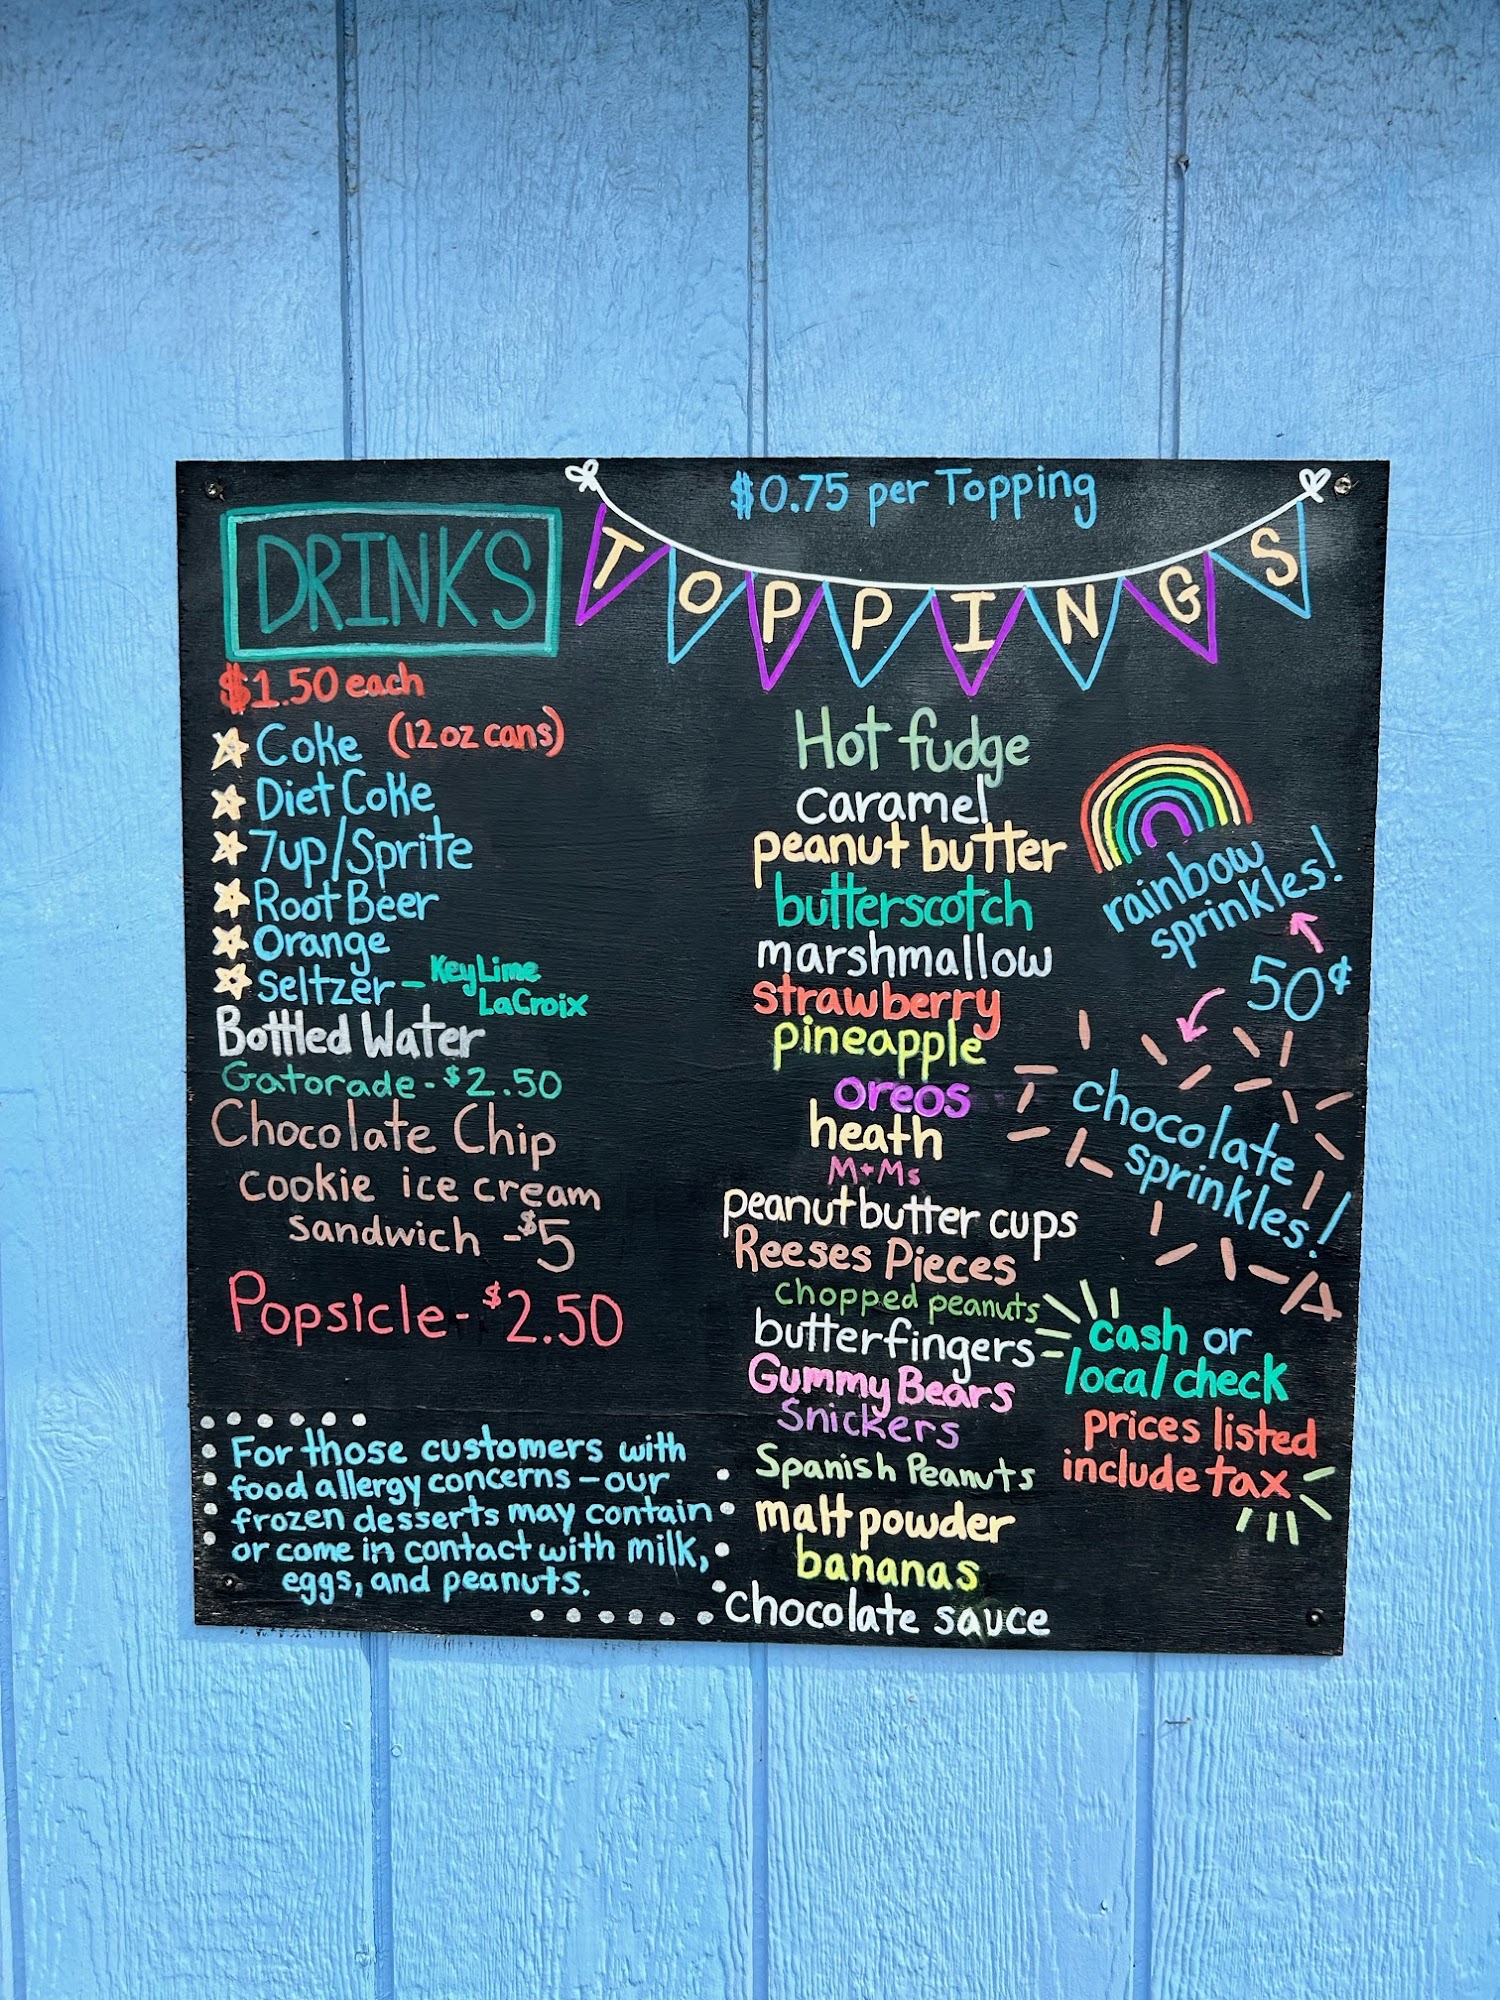 DRINKS
$1.50 each
(12 oz cans)
Coke
Diet Coke
7up/Sprite
Root Beer
Orange
Seltzer - Key Lime
LaCroix
Bottled Water
Gatorade - $2.50
Chocolate Chip
cookie ice cream
sandwich - $5
Popsicle - $2.50
For those customers with
food allergy concerns - our
frozen desserts may contain
or come in contact with milk,
eggs, and peanuts.
$0.75 per Topping
TOPPINGS
Hot fudge
caramel
peanut butter
butterscotch
marshmallow
strawberry
pineapple
oreos
heath
M+Ms
peanut butter cups
Reeses Pieces
chopped peanuts
butterfingers
Gummy Bears
Snickers
Spanish Peanuts
malt powder
bananas
chocolate sauce
rainbow
sprinkles!
50¢
chocolate
sprinkles!
cash or
local check
prices listed
include tax